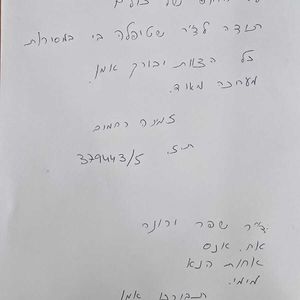 של כולם
תודה לד"ר שטיפלה בי במסירות
כל הצוות יבורך אמן
מעריכה מאוד.
זמירה רחמים
ת.ז.
379443/5
ד"ר שפר ורונה
אח. אנס
אחות הנא
מימי.
תבורכו אמן